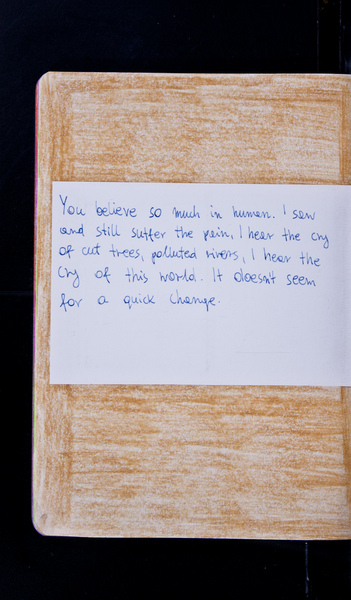 You believe so much in human. I saw
and still suffer the pain, I hear the cry
of cut trees, polluted rivers, I hear the
cry of this world. It doesn't seem
for a quick change.